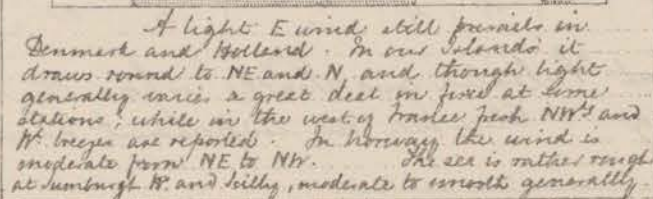 A light E wind still prevails in
Denmark and Holland. In our Islands it
draws round to NE and N, and though light
generally varies a great deal in force at some
stations; while in the west of France fresh NWly and
Wly breezes are reported. In Norway the wind is
moderate from NE to NW. The sea is rather rough
at Sumburgh Hd. and Scilly, moderate to smooth generally.